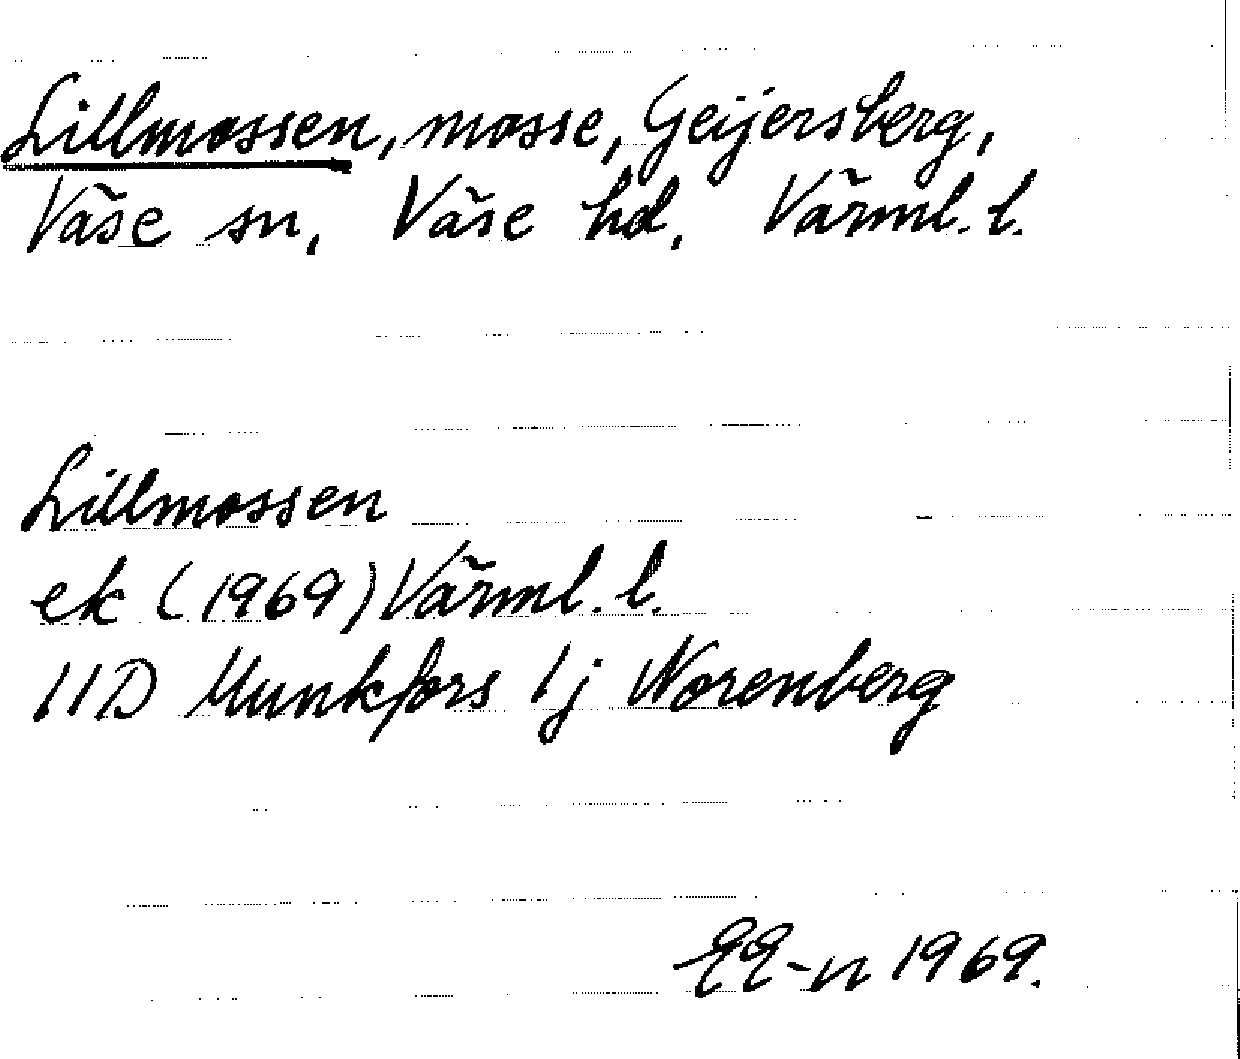 Lillmossen, mosse, Geijersberg,
Väse sn, Väse hd, Värml. l.
Lillmossen
ek (1969) Värml. l.
11D Munkfors 1j Norenberg
1969.